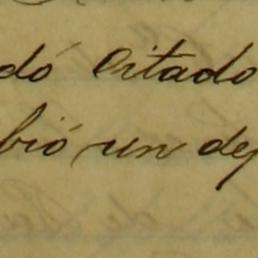 dó citado
bió un dej